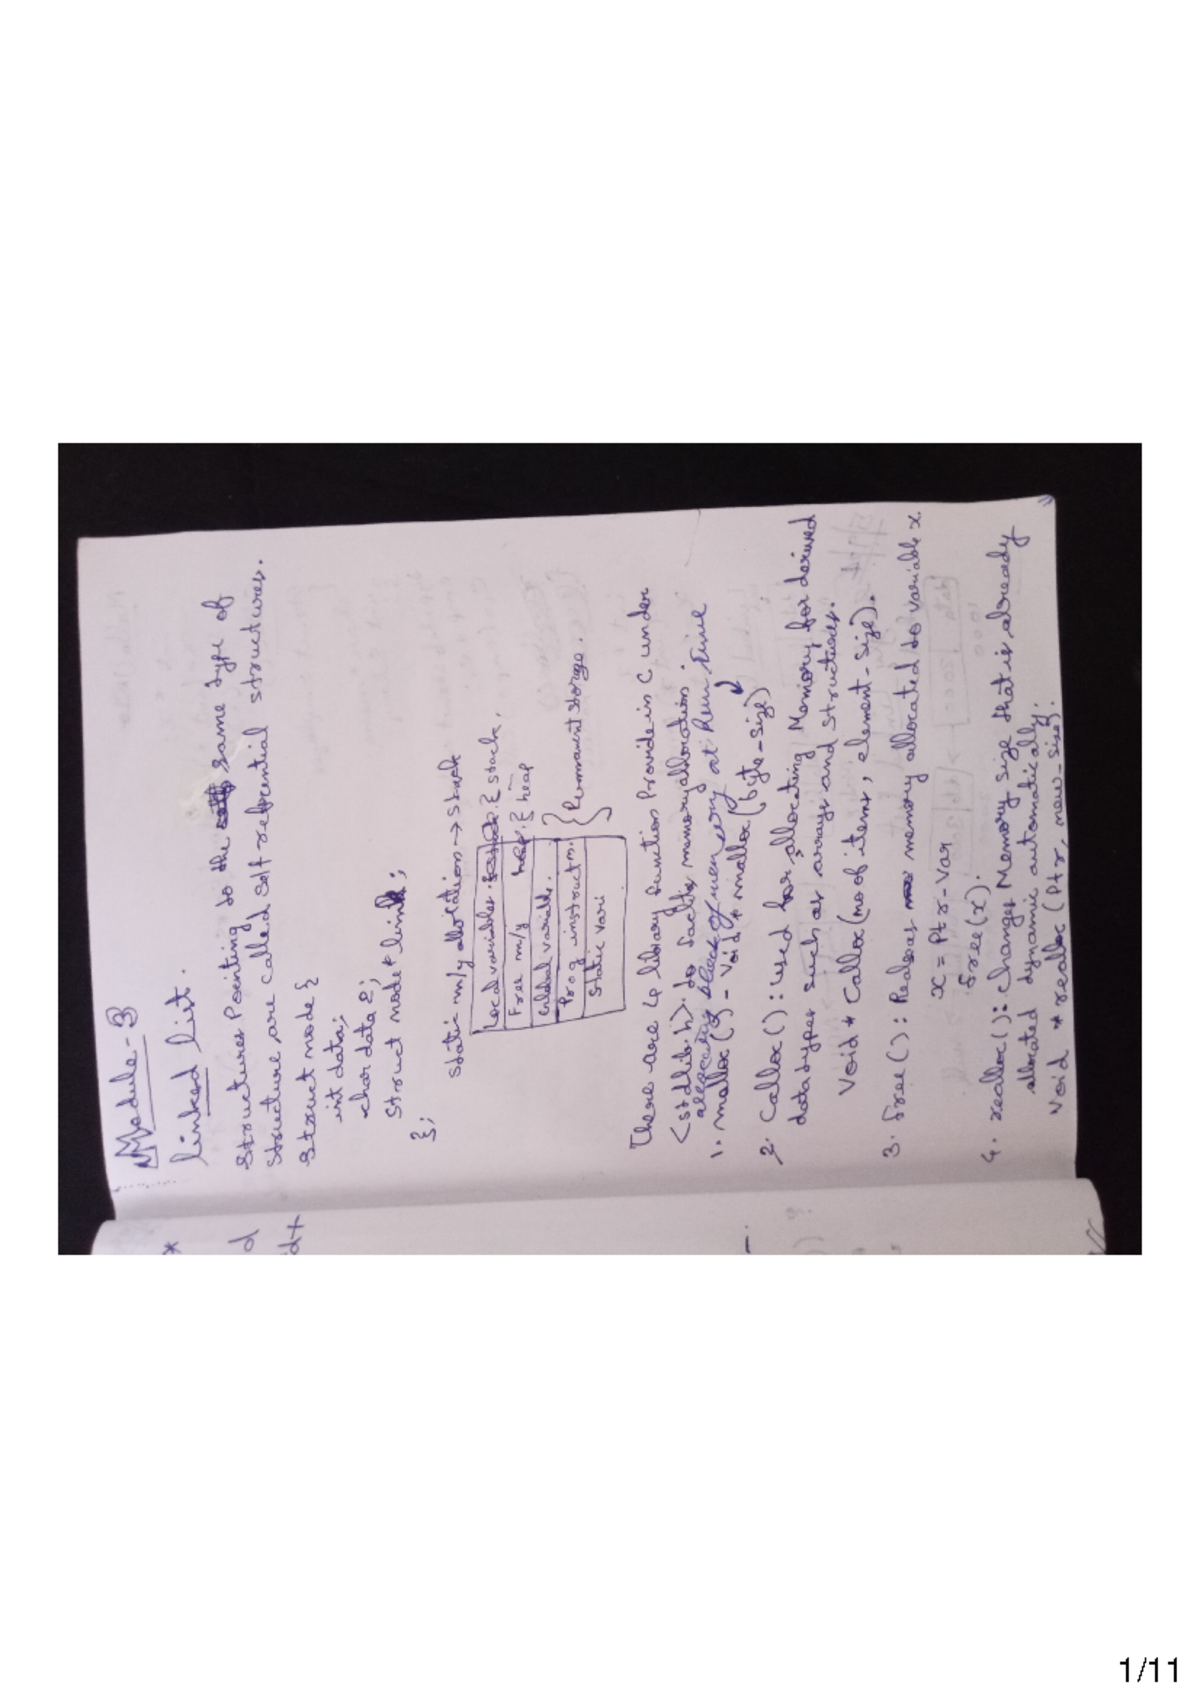 Module-3
linked list.
Structures Pointing to the same type of
structure are called self referential structures.
Struct node {
int data;
char data 2;
Struct node * link;
};
Static m/y allocation → stack
Local variables } stack.
Free m/y } heap
Global variable.
Prog instructn. } Permanent storage.
Static vari
There are 4 library function Provide in C under
<stdlib.h> to facility memory allocation.
allocating block of memory at Run time
1. malloc() - void * malloc (byte-size)
2. Calloc() : used for allocating Memory for derived
data types such as arrays and structures.
Void * Calloc (no of items, element-size).
3. free() : Releas memory allocated to variable x.
x = Ptr-Var
free(x).
4. realloc() : changes Memory size that is already
allocated dynamic automatically.
Void * realloc (Ptr, new-size).
*
d
d+
1/11